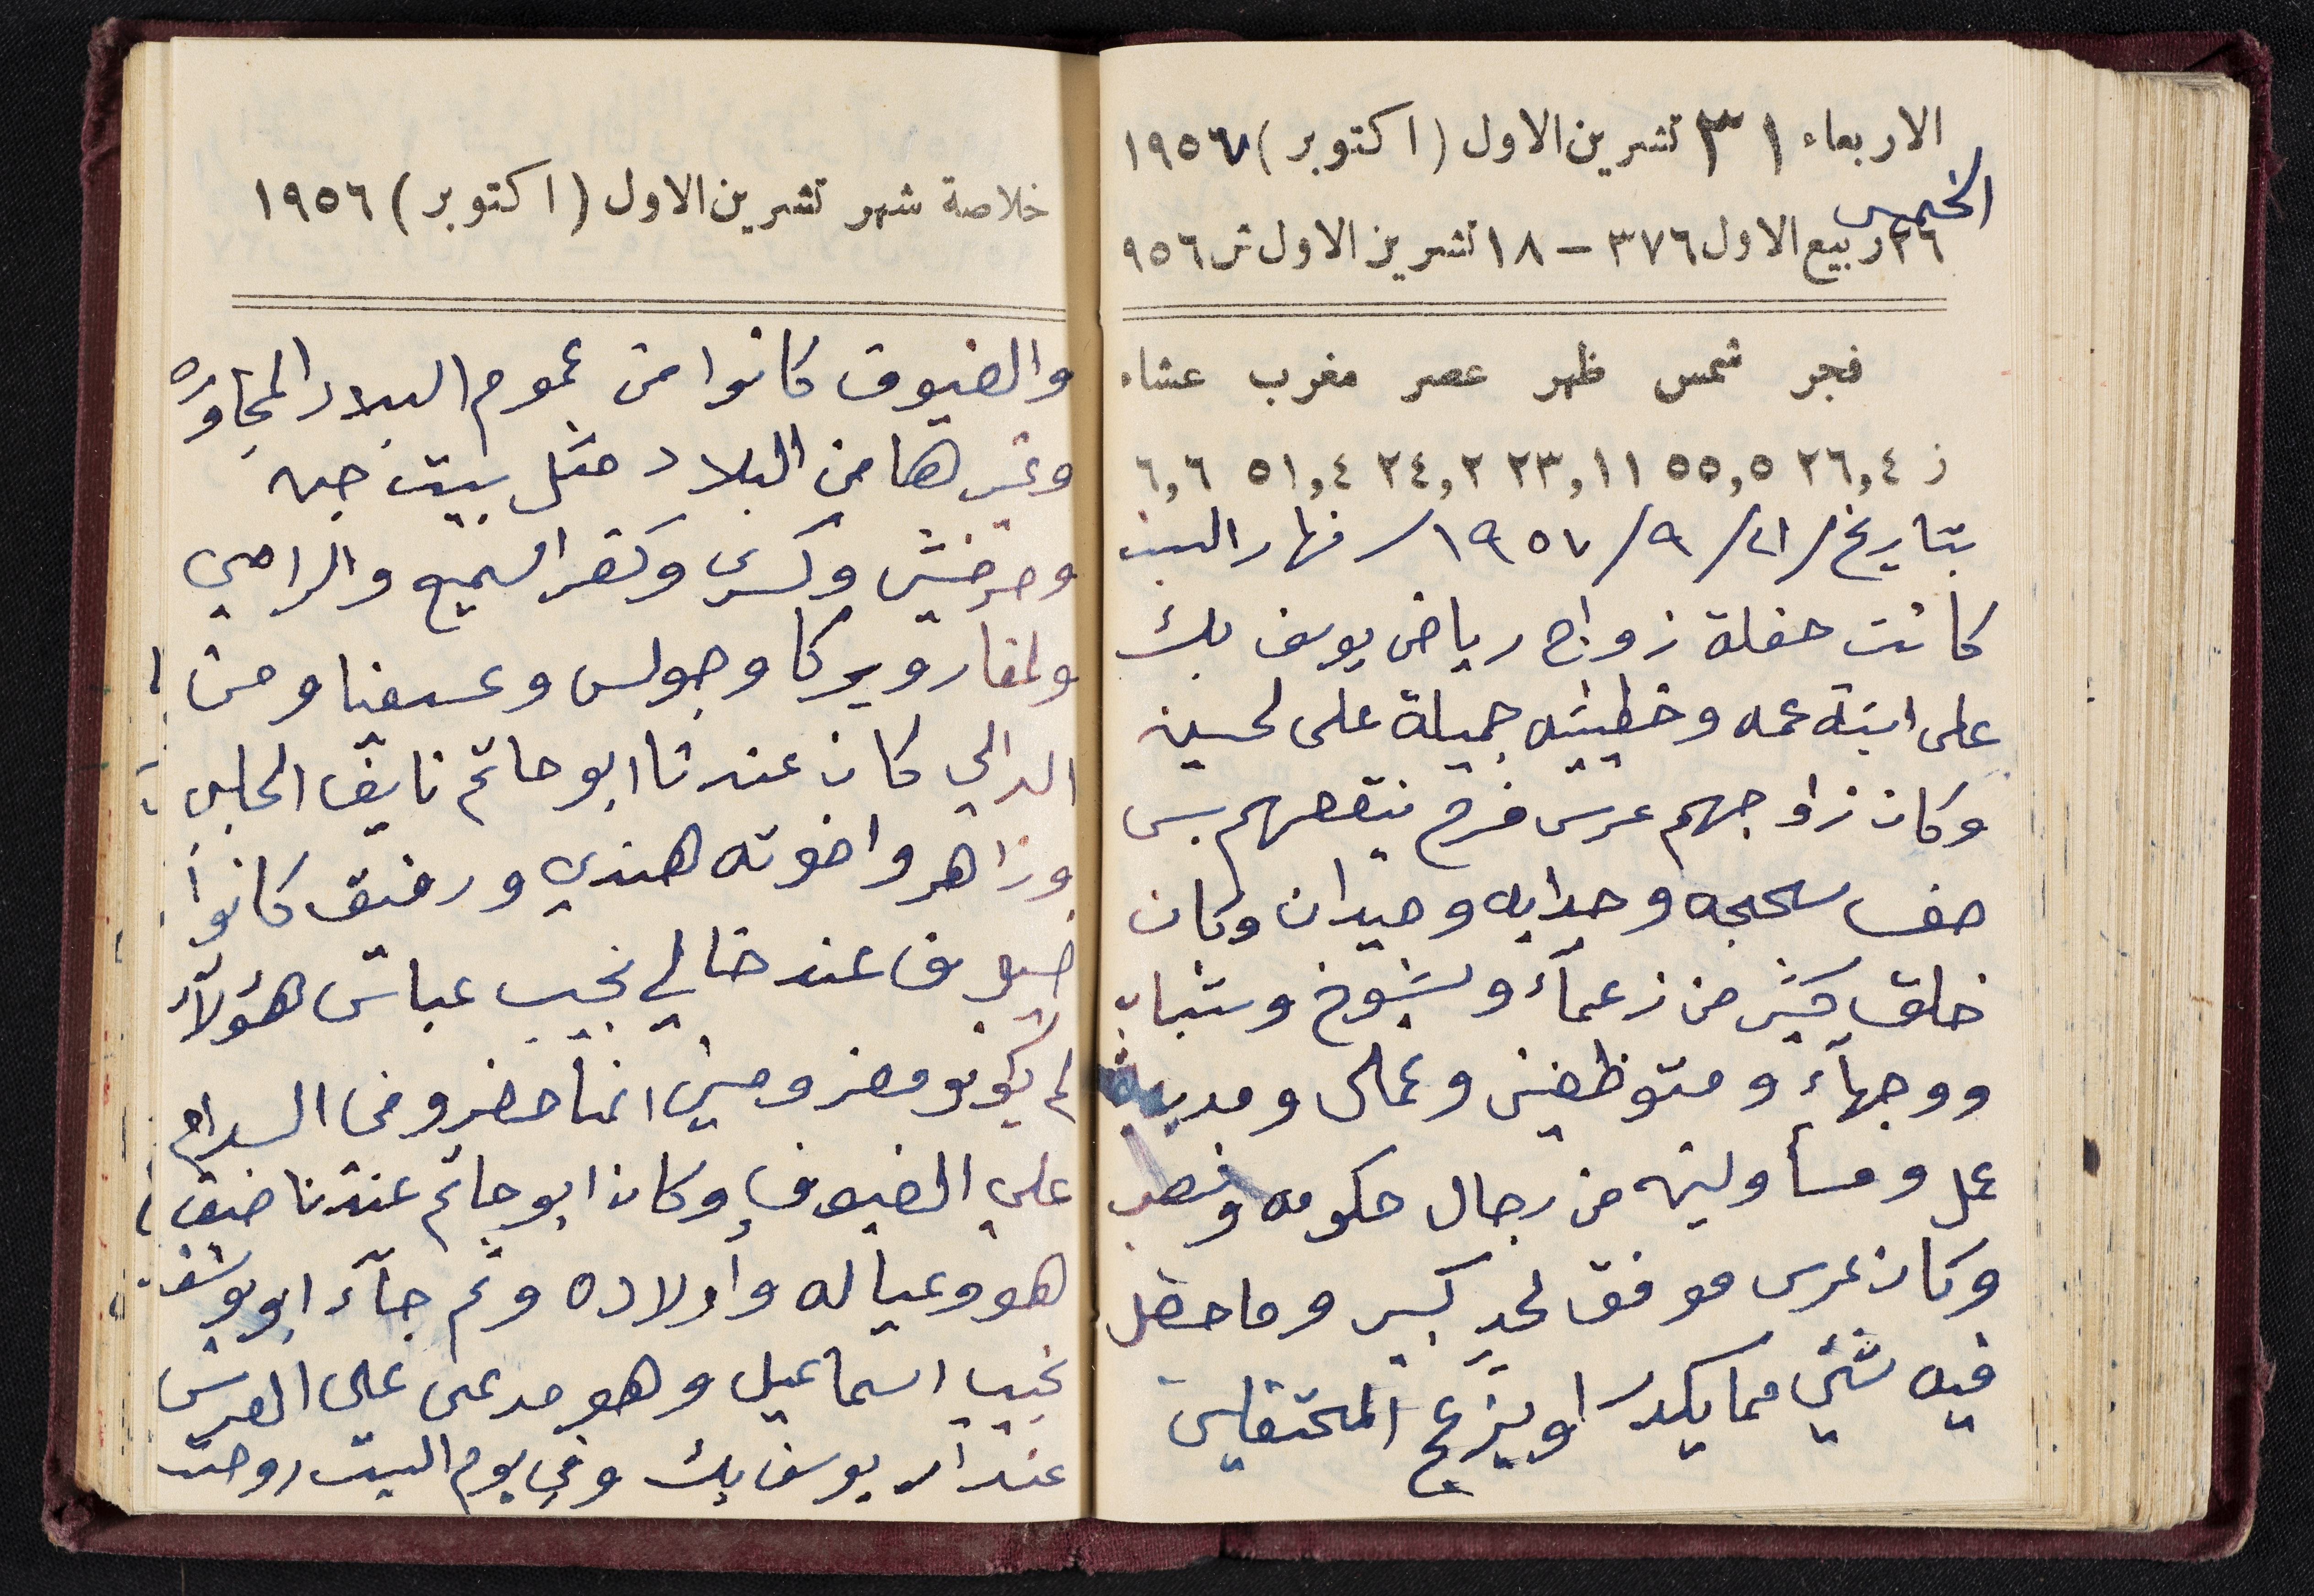 الاربعاء ٣١ تشرين الاول (اكتوبر) ١٩٥٧
الخميس
٢٦ ربيع الاول ٣٧٦ – ١٨ تشرين الاول ش ٩٥٦
فجر شمس ظهر عصر مغرب عشاء
ز ٢٦,٤ ٥٥,٥ ٢٣,١١ ٢٤,٢ ٥١,٤ ٦,٦
بتاريخ / ٢١ / ٩ / ١٩٥٧ / نهار السبت
كانت حفلة زواج رياض يوسف بك
على ابنة عمه وخطيبته جميلة على لحسين
وكان زواجهم عرس فرح ينقصهم بس
صف سحجه وحدايه وميدان وكان
خلق كثير من زعمآء وشيوخ وشباب
ووجهآء ومتوظفين وعمال ومديرين
عمل ومسأولين من رجال حكومه
وكان عرس موفق لحدٍ كبير وما حصل
فيه شيٍ مما يكدر او يزعج المحتفلين
خلاصة شهر تشرين الاول (اكتوبر) ١٩٥٦
والضيوف كانوا من عموم البلاد المجاوره
وغيرها من البلاد مثل بيت جن
وحرفيش وكسرى وكفر السميع والرامي
ولمغار ويركا وجولس وعسفيا ومن
الدالي كان عندنا ابو حاتم نايف الحلبي
وزاهر واخوته هندي ورفيق كانوا
ضيوف عند خالي نجيب عباس هؤلآء
لم يكونو معزومين انما حضرو من السلام
علي الضيوف وكان ابو حاتم عندنا ضيف
هو وعياله وأولاده وثم جآء ابو يوسف
نجيب اسماعيل وهو مدعى على العرس
عند آل يوسف بك وفي يوم السبت روحت